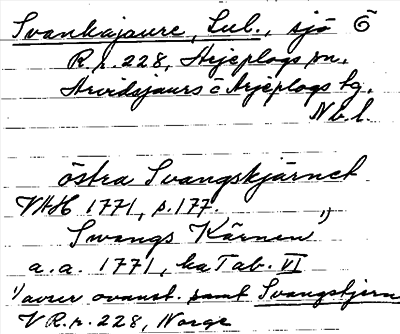 Svankajaure, Lul., sjö Ö
R.r. 228, Arjeplogs sn.
Arvidsjaurs o Arjeplogs tg.
Nb.l.
östra Svangskjärnet
VHH 1771, p. 177.
Swangs Kärnen 1)
a.a. 1771, ka Tab. VI
1) avser ovanst. samt Svangstjern
V R.r. 228, Norge